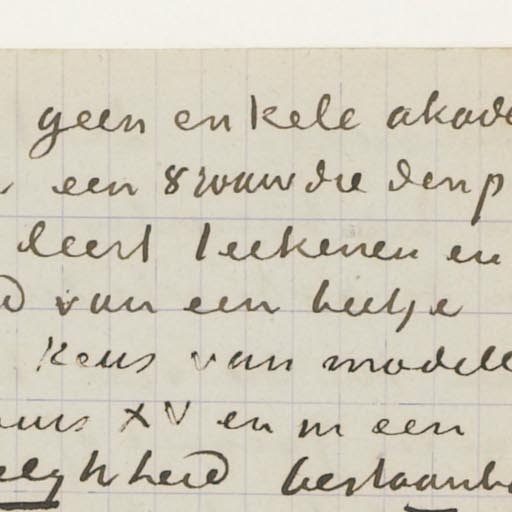 geen enkele akade
een vrouw die den p
leert teekenen en
d van een beetje
keus van modell
ouis XV en in een
elykheid bestaanba